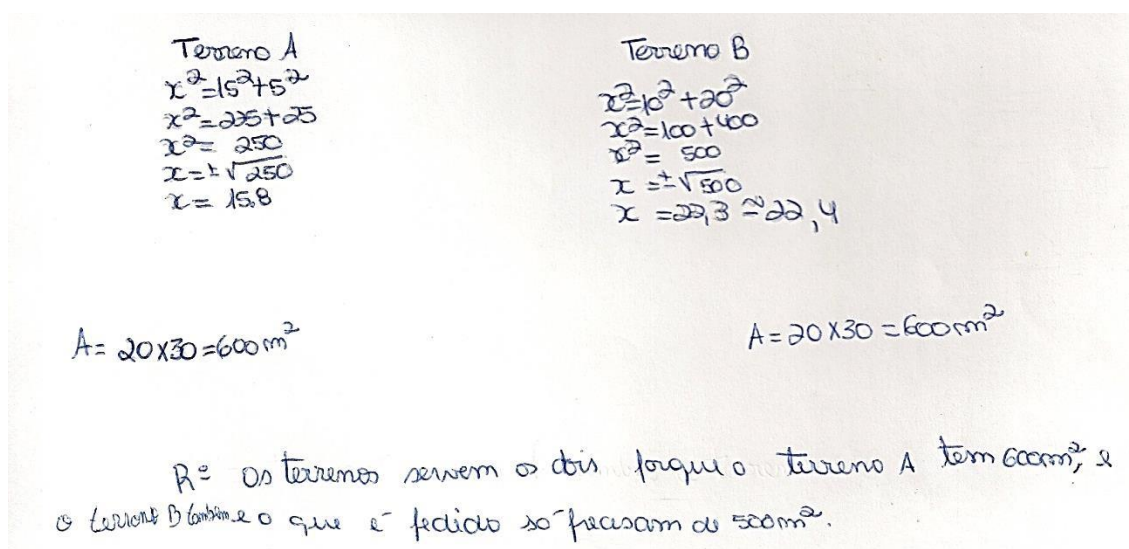 Terreno A
x²=15²+5²
x²=225+25
x²= 250
x=±√250
x= 15,8
Terreno B
x²=10²+20²
x²=100+400
x²= 500
x =±√500
x =22,3 ≈22,4
A= 20X30=600m²
A=20X30=600m²
R: Os terrenos servem os dois porque o terreno A tem 600m², e
o terreno B também e o que é pedido só precisam de 500m².